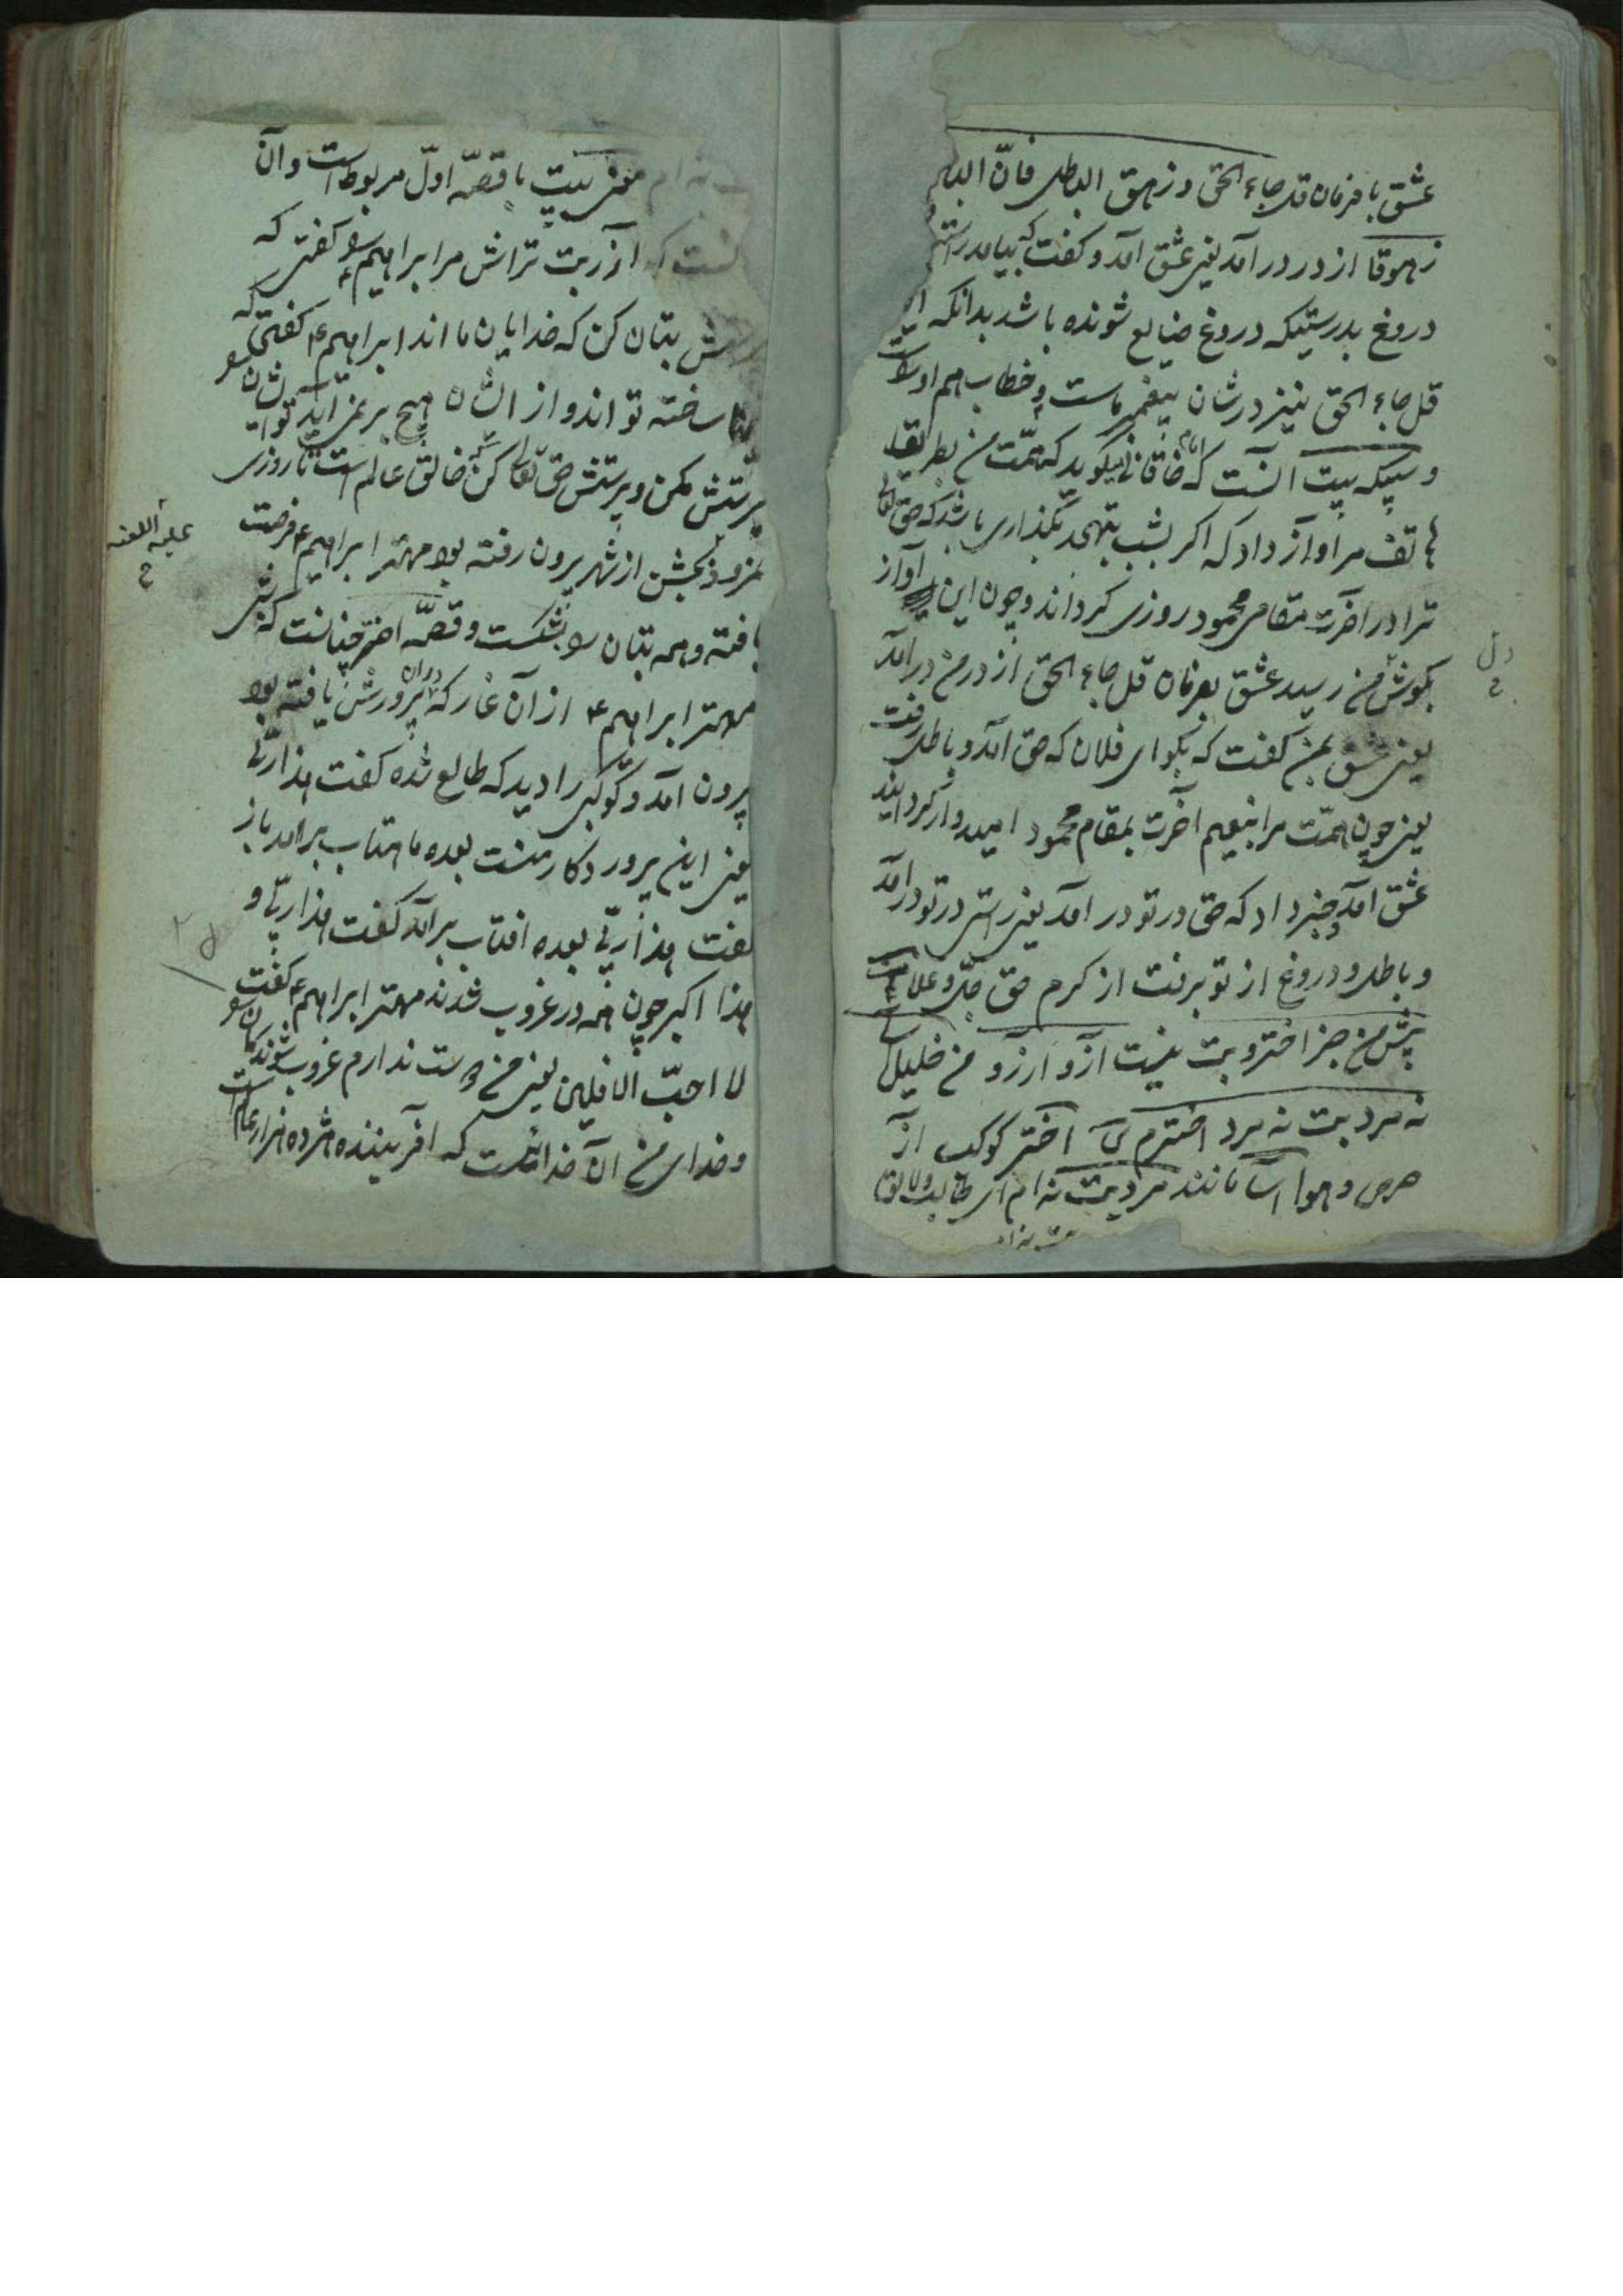 عشق با فرمان قل جاء الحق و زهق الباطل فان البا
زهوقا از در درامد یعنی عشق امد و کفت که بیامد راستی
دروغ بدرستیکه دروغ ضایع شونده باشد بدانکه
قل جاء الحق نیز درشان پیغمبر ماست و خطاب هم اورا
و سپکه بیت آنست که امام خاقانی میکوید که همت من بطریق
هاتف مرا واز داد که اکر بشب بتهجد بکذاری باشد که حق تعالی
ترا در اخرت مقامی محمود روزی کرداند و چون این آواز
بکوش من رسید عشق بفرمان قل جاء الحق از در من درامد
دل
یعنی عشق بمن کفت که بکو ای فلان که حق امد و باطل رفت
یعنی چون همت مرا بنعیم آخرت بمقام محمود امیدوار کردانید
عشق امد و خبر داد که حق در تو در امد یعنی راستی در تو درامد
و باطل و دروغ از تو برفت از کرم حق جل و علا
پیش من جز اختر و بت نیست آز و آرزو من خلیل
نه مرد بت نه مرد اخترم اختر کوکب از
حرص و هوا مانند مرد بت نه ام ای طالب
نه ام معنی بیت با قصه اول مربوط است و آن
آنست که ازر بت تراش مر ابراهیم را کفتی که
بتان کن که خدایان ما اند ابراهیم کفتی که
ساخته تو اند و از ایشان هیچ بر نمی آید تو ایشان را
پرستش مکن و پرستش حق تعالی کن که خالق عالم است تا روزی
نمرود بجشن از شهر بیرون رفته بود مهتر ابراهیم فرصت
علیه اللعنه
یافته و همه بتان را بشکست و قصه اختر چنانست که شبی
مهتر ابراهیم از آن غار که دران پرورش یافته بود
بیرون آمد و کوکبی را دید که طالع شده کفت هذا ربی
یعنی این پروردکار منست بعده ماهتاب برامد باز
کفت هذا ربی بعده افتاب برآمد کفت هذا ربی و
هذا اکبر چون همه در غروب شدند مهتر ابراهیم کفت
لا احب الافلین یعنی من دوست ندارم غروب شوندکان را
و خدای من آن خدائست که آفریننده هژده هزار عالم است